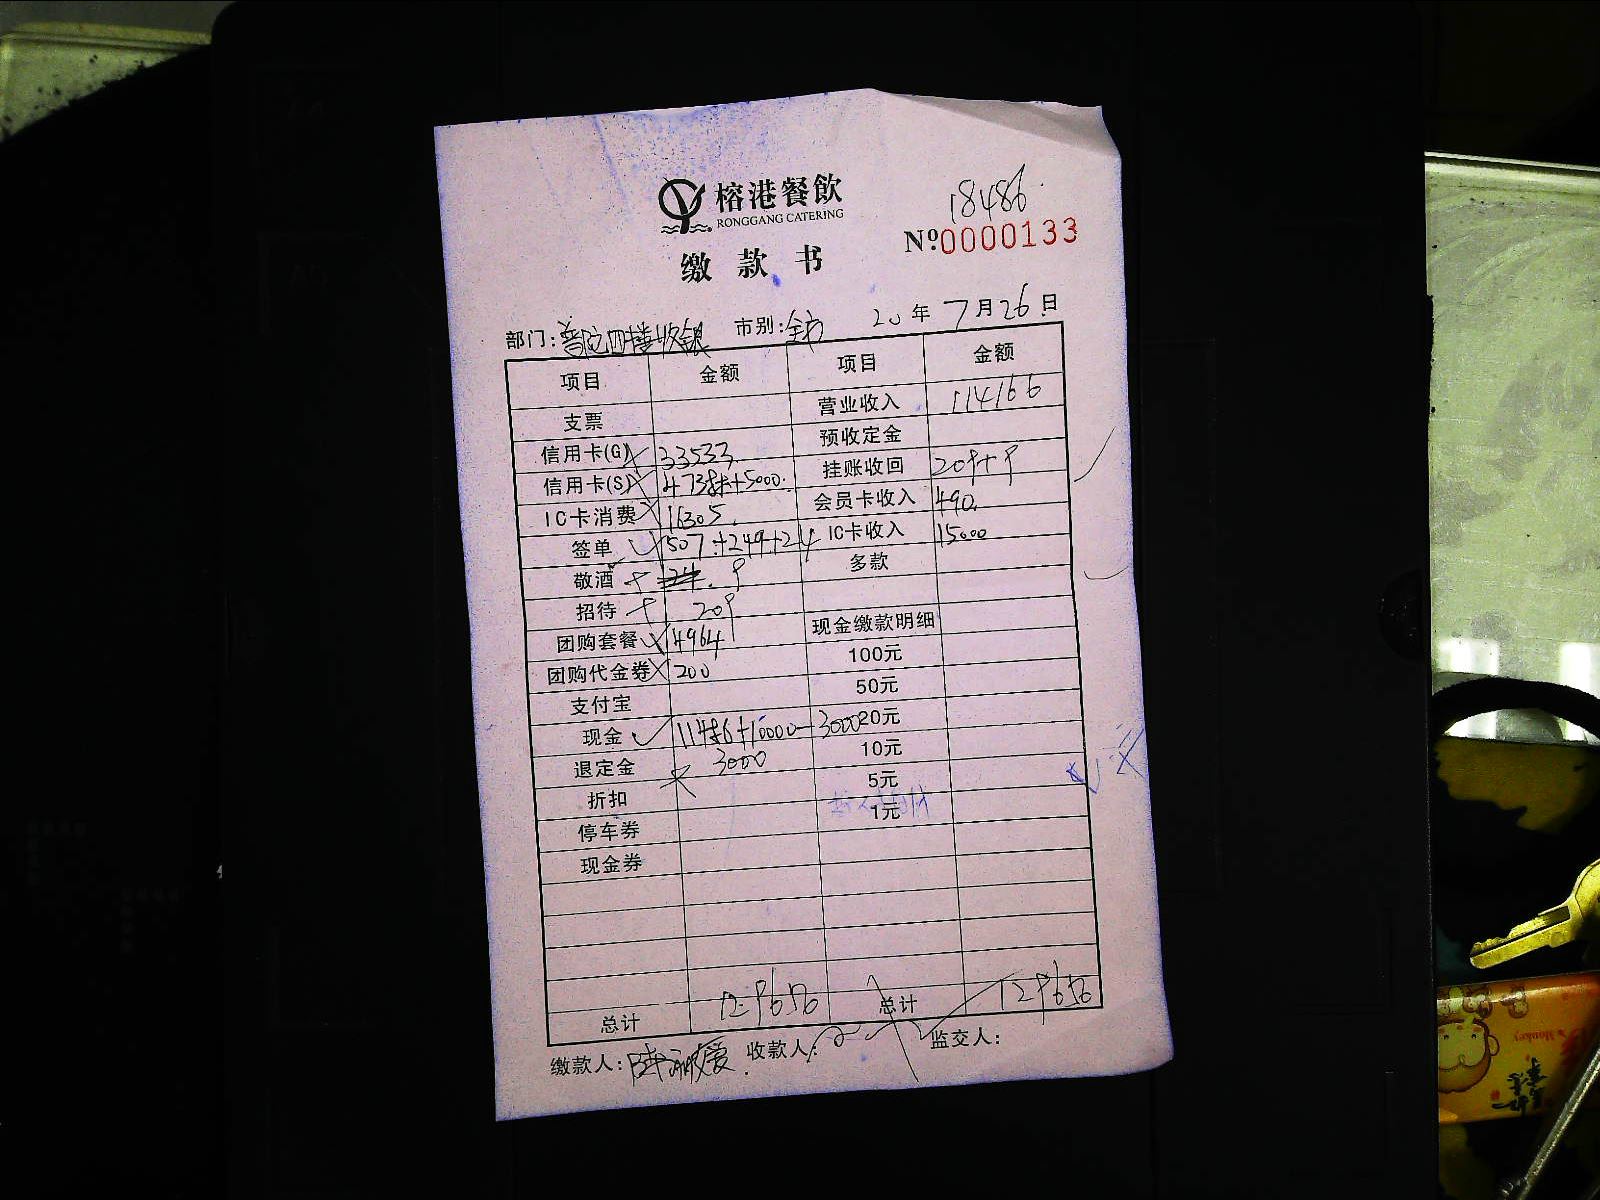 18486
榕港餐飲
RONGGANG CATERING
№0000133
缴款书
部门:普陀四楼收银 市别:全市 20 年 7 月 26 日
项目 金额 项目 金额
支票 营业收入 114166
信用卡(G) 33533 预收定金
信用卡(S) +5000 挂账收回 209+9
IC卡消费 16305 会员卡收入 490
签单 507+249+24 IC卡收入 15000
敬酒 9 多款
招待 209
团购套餐 4964 现金缴款明细
团购代金券 200 100元
支付宝 50元
现金 11486+10000-3000 20元
退定金 3000 10元
折扣 5元
停车券 1元
现金券
总计 129656 总计 129656
缴款人: 收款人: 监交人: